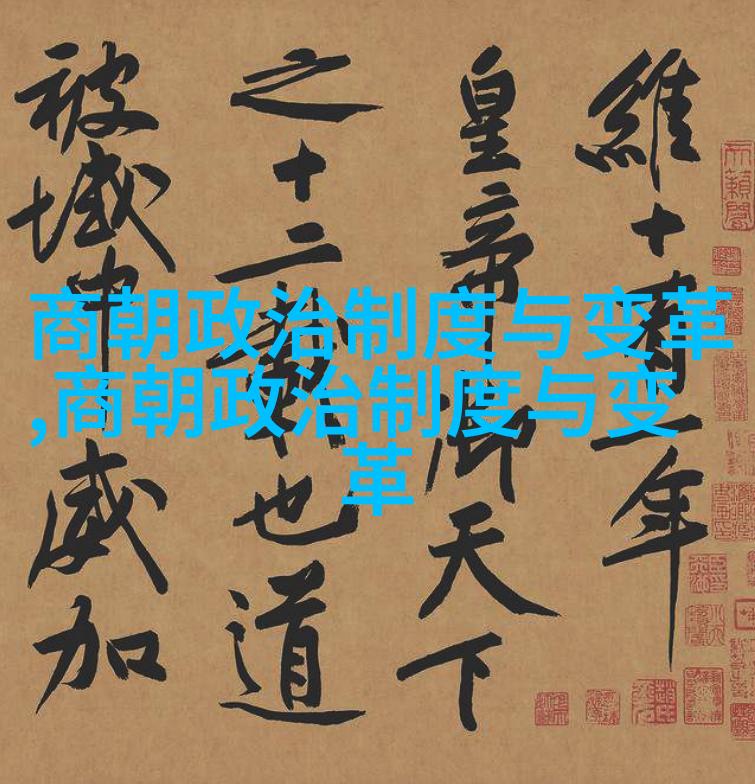 維十有一年
皇帝御天下
之十二也道
被域中威加
商朝政治制度与变革
,商朝政治制度与变
革